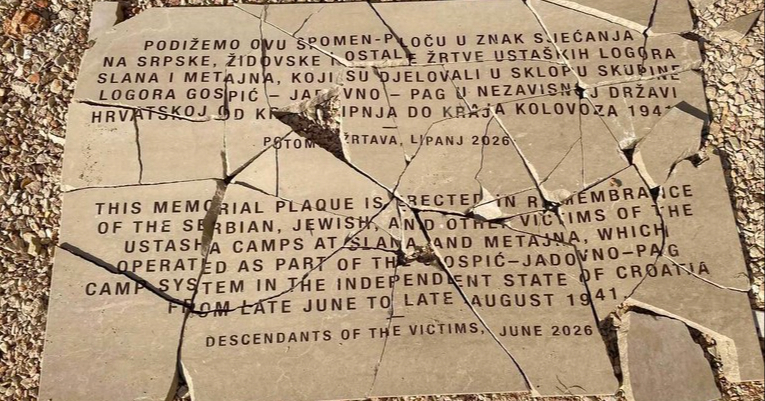 PODIŽEMO OVU SPOMEN-PLOČU U ZNAK SJEĆANJA
NA SRPSKE, ŽIDOVSKE I OSTALE ŽRTVE USTAŠKIH LOGORA
SLANA I METAJNA, KOJI SU DJELOVALI U SKLOPU SKUPINE
LOGORA GOSPIĆ – JADOVNO – PAG U NEZAVISNOJ DRŽAVI
HRVATSKOJ OD LIPNJA DO KRAJA KOLOVOZA 1941
POTOMCI ŽRTAVA, LIPANJ 2026
THIS MEMORIAL PLAQUE IS ERECTED IN REMEMBRANCE
OF THE SERBIAN, JEWISH, AND OTHER VICTIMS OF THE
USTASHA CAMPS AT SLANA AND METAJNA, WHICH
OPERATED AS PART OF THE GOSPIĆ–JADOVNO–PAG
CAMP SYSTEM IN THE INDEPENDENT STATE OF CROATIA
FROM LATE JUNE TO LATE AUGUST 1941
DESCENDANTS OF THE VICTIMS, JUNE 2026